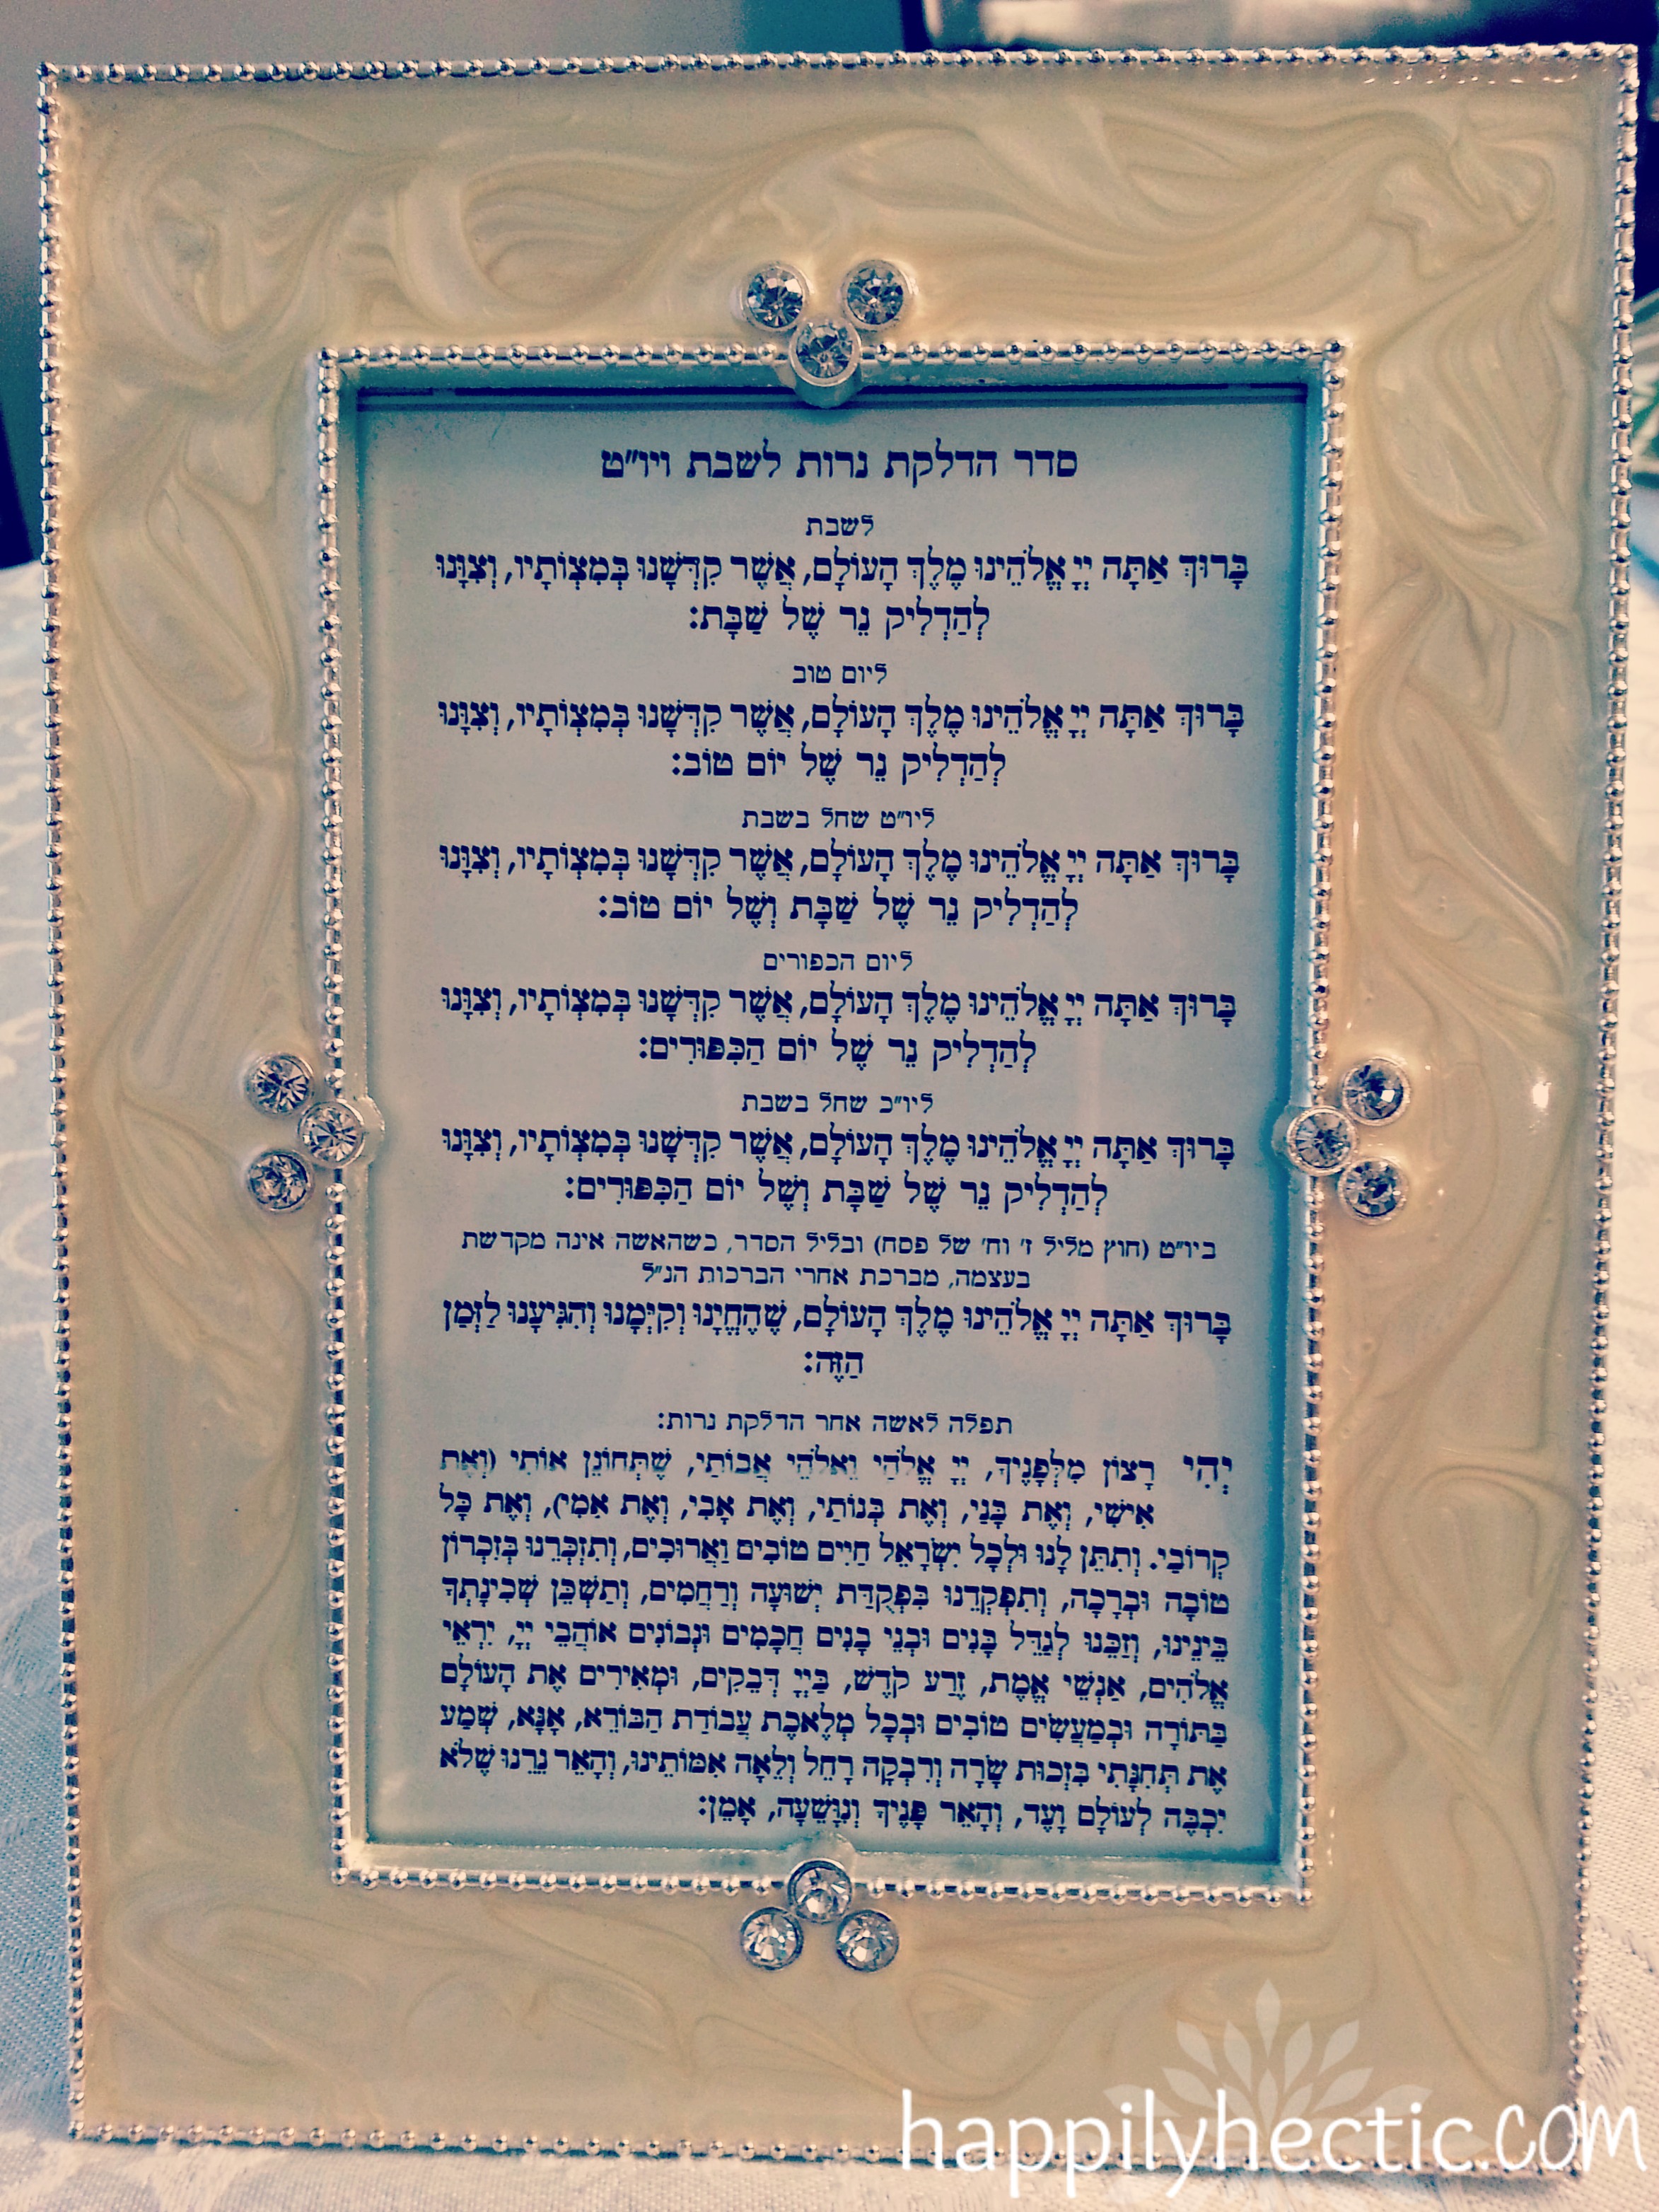 סדר הדלקת נרות לשבת ויו"ט
לשבת
בָּרוּךְ אַתָּה יְיָ אֱלֹהֵינוּ מֶלֶךְ הָעוֹלָם, אֲשֶׁר קִדְּשָׁנוּ בְּמִצְוֹתָיו, וְצִוָּנוּ
לְהַדְלִיק נֵר שֶׁל שַׁבָּת:
ליום טוב
בָּרוּךְ אַתָּה יְיָ אֱלֹהֵינוּ מֶלֶךְ הָעוֹלָם, אֲשֶׁר קִדְּשָׁנוּ בְּמִצְוֹתָיו, וְצִוָּנוּ
לְהַדְלִיק נֵר שֶׁל יוֹם טוֹב:
ליו"ט שחל בשבת
בָּרוּךְ אַתָּה יְיָ אֱלֹהֵינוּ מֶלֶךְ הָעוֹלָם, אֲשֶׁר קִדְּשָׁנוּ בְּמִצְוֹתָיו, וְצִוָּנוּ
לְהַדְלִיק נֵר שֶׁל שַׁבָּת וְשֶׁל יוֹם טוֹב:
ליום הכפורים
בָּרוּךְ אַתָּה יְיָ אֱלֹהֵינוּ מֶלֶךְ הָעוֹלָם, אֲשֶׁר קִדְּשָׁנוּ בְּמִצְוֹתָיו, וְצִוָּנוּ
לְהַדְלִיק נֵר שֶׁל יוֹם הַכִּפּוּרִים:
ליו"כ שחל בשבת
בָּרוּךְ אַתָּה יְיָ אֱלֹהֵינוּ מֶלֶךְ הָעוֹלָם, אֲשֶׁר קִדְּשָׁנוּ בְּמִצְוֹתָיו, וְצִוָּנוּ
לְהַדְלִיק נֵר שֶׁל שַׁבָּת וְשֶׁל יוֹם הַכִּפּוּרִים:
ביו"ט (חוץ מליל ז' וח' של פסח) ובליל הסדר, כשהאשה אינה מקדשת
בעצמה, מברכת אחרי הברכות הנ"ל
בָּרוּךְ אַתָּה יְיָ אֱלֹהֵינוּ מֶלֶךְ הָעוֹלָם, שֶׁהֶחֱיָנוּ וְקִיְּמָנוּ וְהִגִּיעָנוּ לַזְּמַן
הַזֶּה:
תפלה לאשה אחר הדלקת נרות:
יְהִי רָצוֹן מִלְּפָנֶיךָ, יְיָ אֱלֹהַי וֵאלֹהֵי אֲבוֹתַי, שֶׁתְּחוֹנֵן אוֹתִי (וְאֶת
אִישִׁי, וְאֶת בָּנַי, וְאֶת בְּנוֹתַי, וְאֶת אָבִי, וְאֶת אִמִּי), וְאֶת כָּל
קְרוֹבַי. וְתִתֵּן לָנוּ וּלְכָל יִשְׂרָאֵל חַיִּים טוֹבִים וַאֲרוּכִים, וְתִזְכְּרֵנוּ בְּזִכְרוֹן
טוֹבָה וּבְרָכָה, וְתִפְקְדֵנוּ בִּפְקֻדַּת יְשׁוּעָה וְרַחֲמִים, וְתַשְׁכֵּן שְׁכִינָתְךָ
בֵּינֵינוּ, וְזַכֵּנוּ לְגַדֵּל בָּנִים וּבְנֵי בָנִים חֲכָמִים וּנְבוֹנִים אוֹהֲבֵי יְיָ, יִרְאֵי
אֱלֹהִים, אַנְשֵׁי אֱמֶת, זֶרַע קֹדֶשׁ, בַּיְיָ דְּבֵקִים, וּמְאִירִים אֶת הָעוֹלָם
בַּתּוֹרָה וּבְמַעֲשִׂים טוֹבִים וּבְכָל מְלֶאכֶת עֲבוֹדַת הַבּוֹרֵא, אָנָּא, שְׁמַע
אֶת תְּחִנָּתִי בִּזְכוּת שָׂרָה וְרִבְקָה רָחֵל וְלֵאָה אִמּוֹתֵינוּ, וְהָאֵר נֵרֵנוּ שֶׁלֹּא
יִכְבֶּה לְעוֹלָם וָעֶד, וְהָאֵר פָּנֶיךָ וְנִוָּשֵׁעָה, אָמֵן:
happilyhectic.com